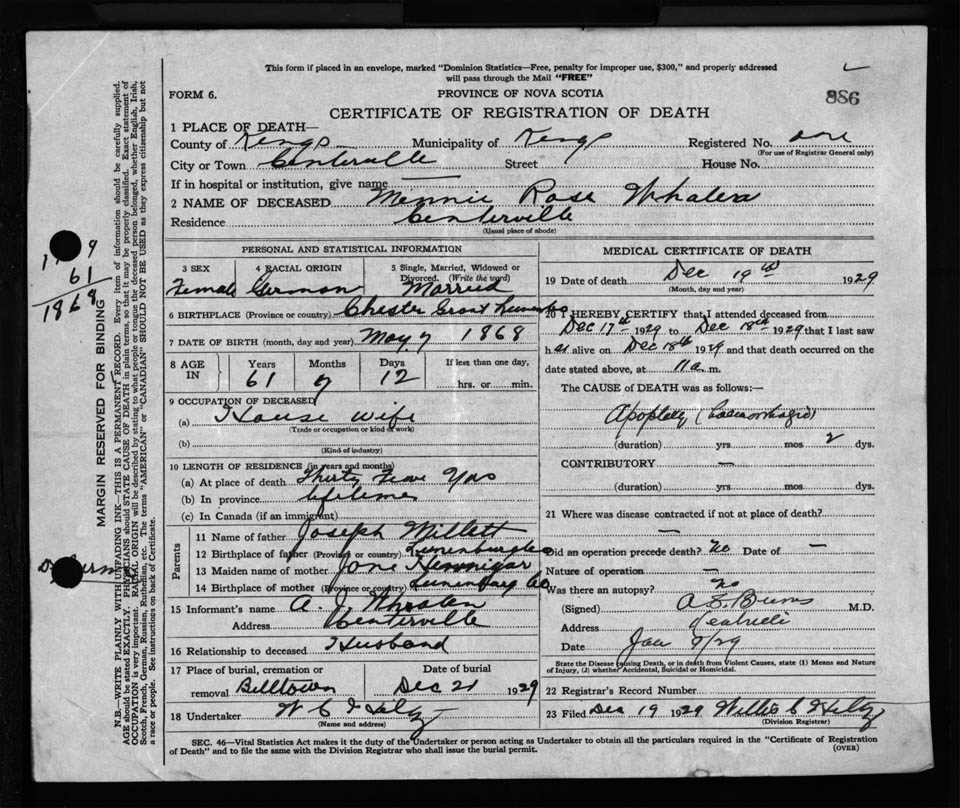 This form if placed in an envelope, marked "Dominion Statistics—Free, penalty for improper use, $300," and properly addressed
will pass through the Mail "FREE"
886
FORM 6.
PROVINCE OF NOVA SCOTIA
CERTIFICATE OF REGISTRATION OF DEATH
1 PLACE OF DEATH—
County of Kings Municipality of Kings Registered No. one
(For use of Registrar General only)
City or Town Centerville Street House No.
If in hospital or institution, give name
2 NAME OF DECEASED Minnie Rose Whalen
Residence Centerville
(Usual place of abode)
PERSONAL AND STATISTICAL INFORMATION
3 SEX 4 RACIAL ORIGIN 5 Single, Married, Widowed or
Divorced. (Write the word)
Female German Married
6 BIRTHPLACE (Province or country) Chester Grant
7 DATE OF BIRTH (month, day and year) May 7 1868
8 AGE IN Years Months Days If less than one day,
61 7 12 hrs. or min.
9 OCCUPATION OF DECEASED
(a) House wife
(Trade or occupation or kind of work)
(b)
(Kind of industry)
10 LENGTH OF RESIDENCE (in years and months)
(a) At place of death Thirty Yrs
(b) In province lifetime
(c) In Canada (if an immigrant)
Parents
11 Name of father Joseph Millett
12 Birthplace of father (Province or country) Lunenburg Co
13 Maiden name of mother Jane Hennigar
14 Birthplace of mother (Province or country) Lunenburg Co
15 Informant's name A. J. Whalen
Address Centerville
16 Relationship to deceased Husband
17 Place of burial, cremation or Date of burial
removal Billtown Dec 21 1929
18 Undertaker W C
(Name and address)
MEDICAL CERTIFICATE OF DEATH
19 Date of death Dec 19th 1929
(Month, day and year)
20 I HEREBY CERTIFY that I attended deceased from
Dec 17th 1929 to Dec 18th 1929 that I last saw
her alive on Dec 18th 1929 and that death occurred on the
date stated above, at 11 a. m.
The CAUSE of DEATH was as follows:—
Apoplexy (haemorrhagic)
(duration) yrs mos 2 dys.
CONTRIBUTORY —
(duration) yrs. mos. dys.
21 Where was disease contracted if not at place of death?
—
Did an operation precede death? No Date of —
Nature of operation —
Was there an autopsy? No
(Signed) A. S. Burns M.D.
Address
Date Jan /29
State the Disease causing Death, or in death from Violent Causes, state (1) Means and Nature
of Injury, (2) whether Accidental, Suicidal or Homicidal.
22 Registrar's Record Number
23 Filed Dec 19 1929 Willie C
(Division Registrar)
SEC. 46—Vital Statistics Act makes it the duty of the Undertaker or person acting as Undertaker to obtain all the particulars required in the "Certificate of Registration
of Death" and to file the same with the Division Registrar who shall issue the burial permit.
(OVER)
61
1868
MARGIN RESERVED FOR BINDING
N.B.—WRITE PLAINLY WITH UNFADING INK—THIS IS A PERMANENT RECORD. Every item of information should be carefully supplied.
AGE should be stated EXACTLY. PHYSICIANS should STATE CAUSE OF DEATH in plain terms, so that it may be properly classified. Exact statement of
OCCUPATION is very important. RACIAL ORIGIN will be described by stating to what people or tongue the deceased person belonged, whether English, Irish,
Scotch, French, German, Russian, Ruthenian, etc. The terms "AMERICAN" or "CANADIAN" SHOULD NOT BE USED as they express citizenship but not
a race or people. See instructions on back of Certificate.